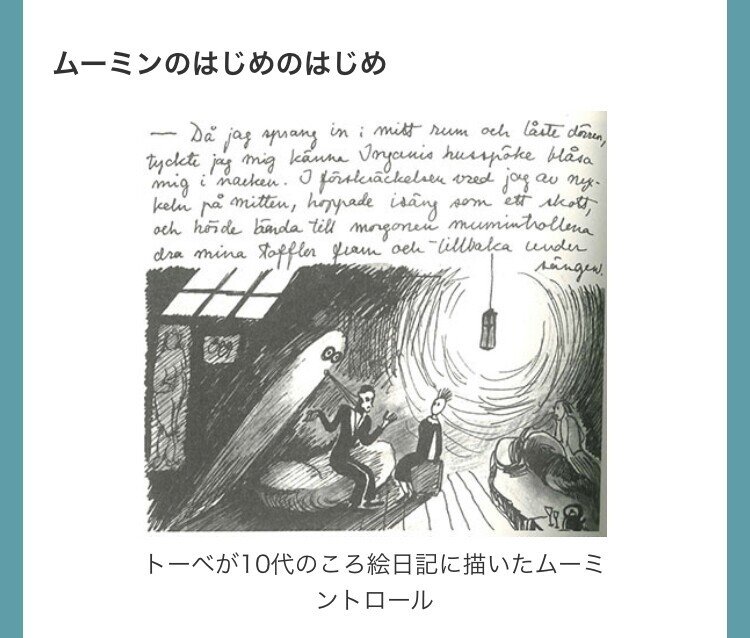 ムーミンのはじめのはじめ
— Då jag sprang in i mitt rum och låste dörren,
tyckte jag mig känna Inganis husspöke blåsa
mig i nacken. I förskräckelsen vred jag av nyc-
keln på mitten, hoppade isäng som ett skott,
och hörde ända till morgonen mumintrollena
dra mina tofflor fram och tillbaka under
sängen.
トーベが10代のころ絵日記に描いたムーミ
ントロール